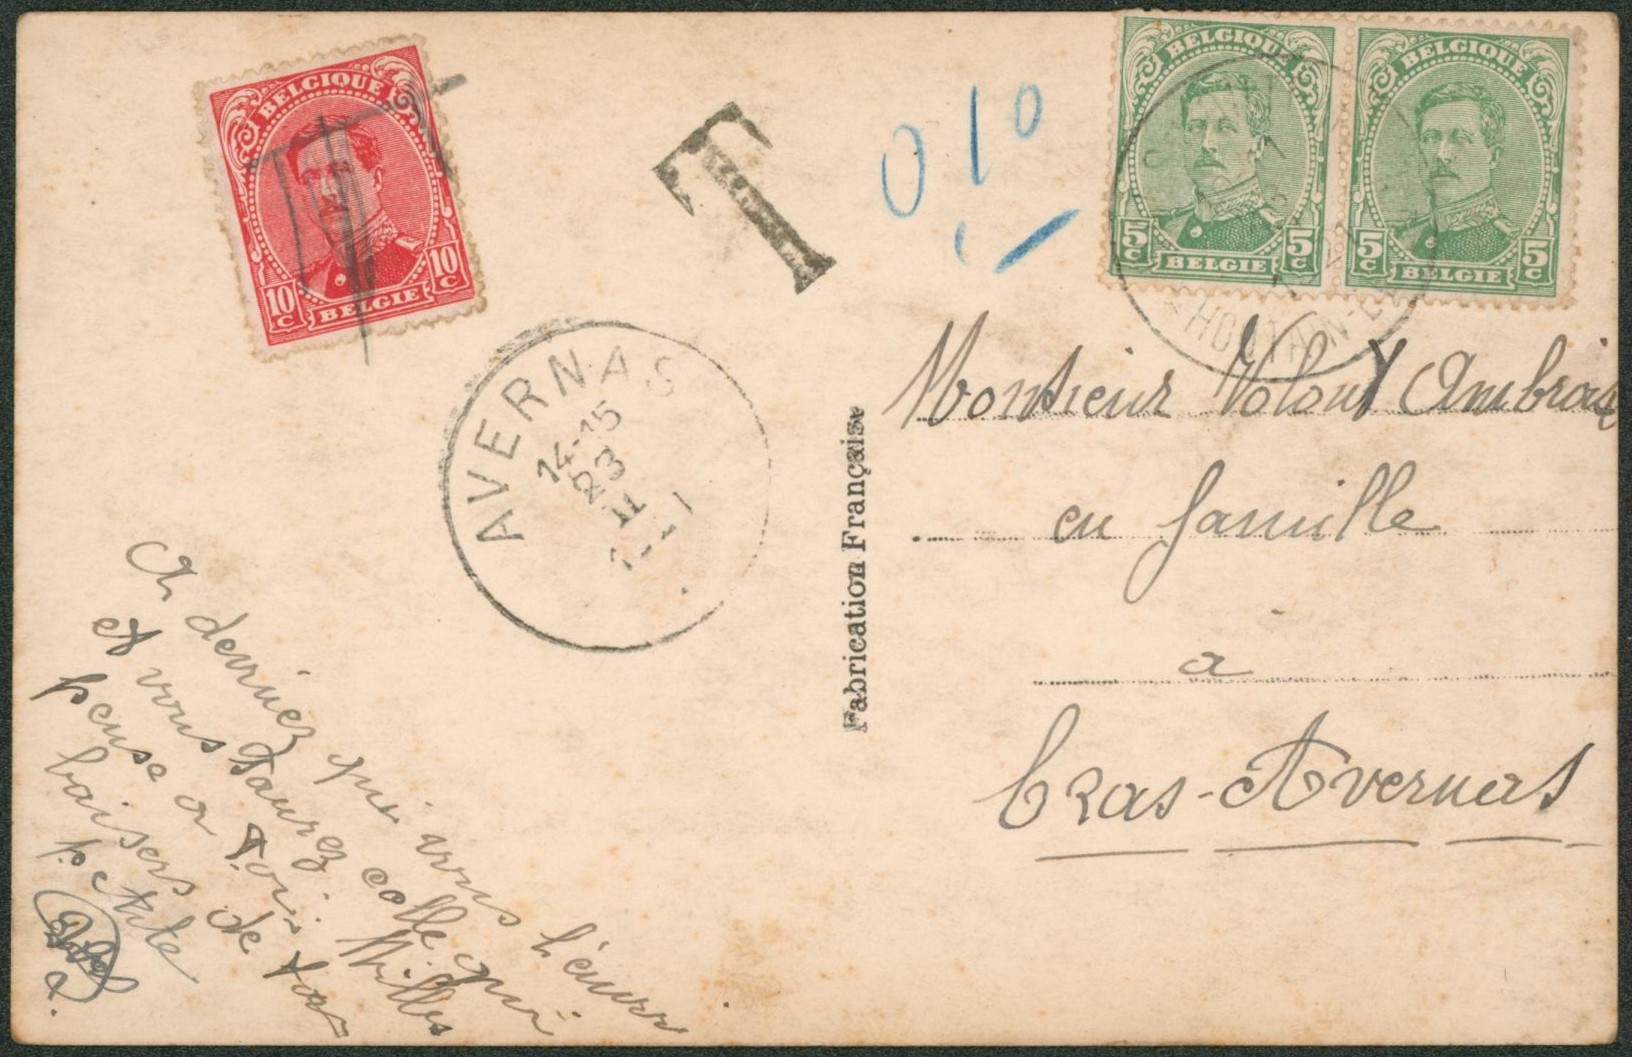 BELGIQUE
10 C 10 C
BELGIE
T
0 10
BELGIQUE
5 C 5 C
BELGIE
BELGIQUE
5 C 5 C
BELGIE
HOUTAIN-
AVERNAS
14-15
23
11
Fabrication Française
Monsieur Volont Ambrois
en famille
à
Cras-Avernas
derviez qui vous
et vous Saurez celle qui
pense a toi Milles
baisers de ta
petite